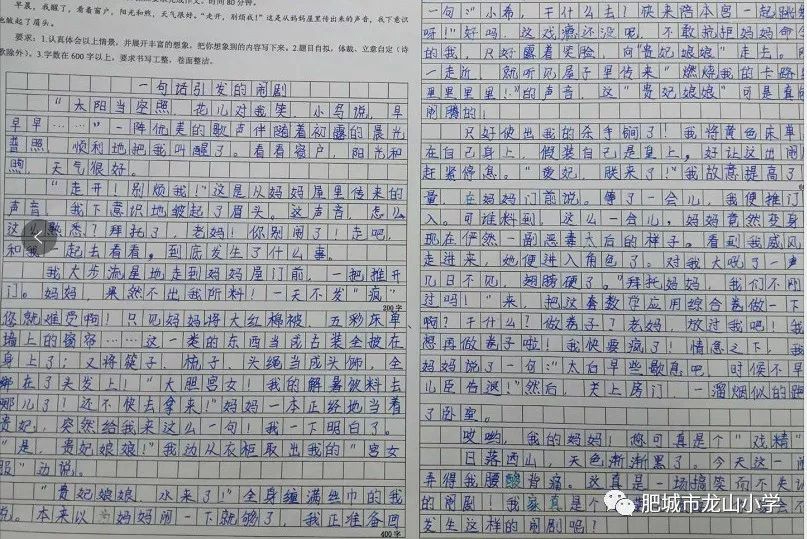 早晨，我醒了，看看窗户，阳光和煦，天气很好。“走开，别烦我！”这是从妈妈屋里传出来的声音，我下意识
地皱起了眉头。
要求：1.认真体会以上情景，并展开丰富的想象，把你想象到的内容写下来。2.题目自拟，体裁、立意自定（诗
歌除外）。3.字数在600字以上，要求书写工整，卷面整洁。
一句话引发的闹剧
“太阳当空照，花儿对我笑，小鸟说，早
早早……”一阵优美的歌声伴随着初露的晨光
普照，顺利地把我叫醒了。看看窗户，阳光和
煦，天气很好。
“走开！别烦我！”这是从妈妈屋里传来的
声音，我下意识地皱起了眉头。这声音，怎么
这么熟悉？拜托了，老妈！你别闹了！走吧，
和我一起去看看，到底发生了什么事。
我大步流星地走到妈妈屋门前，一把推开
门。妈妈，果然不出我所料！一天不发“疯”
200字
您就难受啊！只见妈妈将大红棉被、五彩床单、
墙上的窗帘……这一类的东西当成古装全披在
身上了；又将筷子、梳子、头绳当成头饰，全
绑在了头发上！“大胆宫女！我的解暑饮料去
哪儿了！还不快去拿来！”妈妈一本正经地当着
贵妃，突然给我来这么一句！我一下明白了。
“是，贵妃娘娘！”我边从衣柜取出我的“宫女
服”边说。
“贵妃娘娘，水来了！”全身缠满丝巾的我
说。本来以为妈妈闹一下就够了，我正准备回
400字
一句：“小希，干什么去！快来陪本宫一起跳
呀！”好吗，这戏瘾还没呢，不敢抗拒妈妈命令
的我，只好露着笑脸，向“贵妃娘娘”走去。
一走近，就听见屋子里传来“燃烧我的卡路
里里里里！”的声音，这“贵妃娘娘”可是真的
闹腾的！
只好使出我的杀手锏了！我将黄色床单
在自己身上，假装自己是皇上，好让这出闹
赶紧停息。“爱妃，朕来了！”我故意提高了
量，在妈妈门前说。等了一会儿，我便推门
入。可谁料到，这么一会儿，妈妈竟然变身
现在俨然一副恶毒太后的样子。看到我威风
走进来，她便进入角色了。对我大吼了一声
几日不见，翅膀硬了。”拜托妈妈，我们不刚
过吗！“来，把这套数学应用综合卷做一下
啊？干什么？做卷子？老妈，放过我吧！我
想再做卷子啦！我快要疯了！情急之下，我
妈妈说了一句：“太后早些歇息吧，时候不早
儿臣告退！”然后，关上房门，一溜烟似的跑
了卧室。
哎哟，我的妈妈！您可真是个“戏精”
日落西山，天色渐渐黑了。今天这一闹
弄得我腰酸背痛。这真是一场搞笑而不失
的闹剧！我家真是个
发生这样的闹剧呢？
肥城市龙山小学